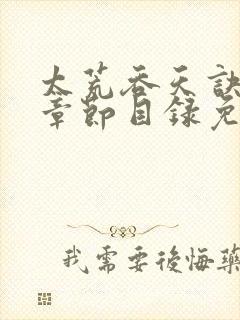 太荒吞天訣
章節目錄免
我需要後悔藥